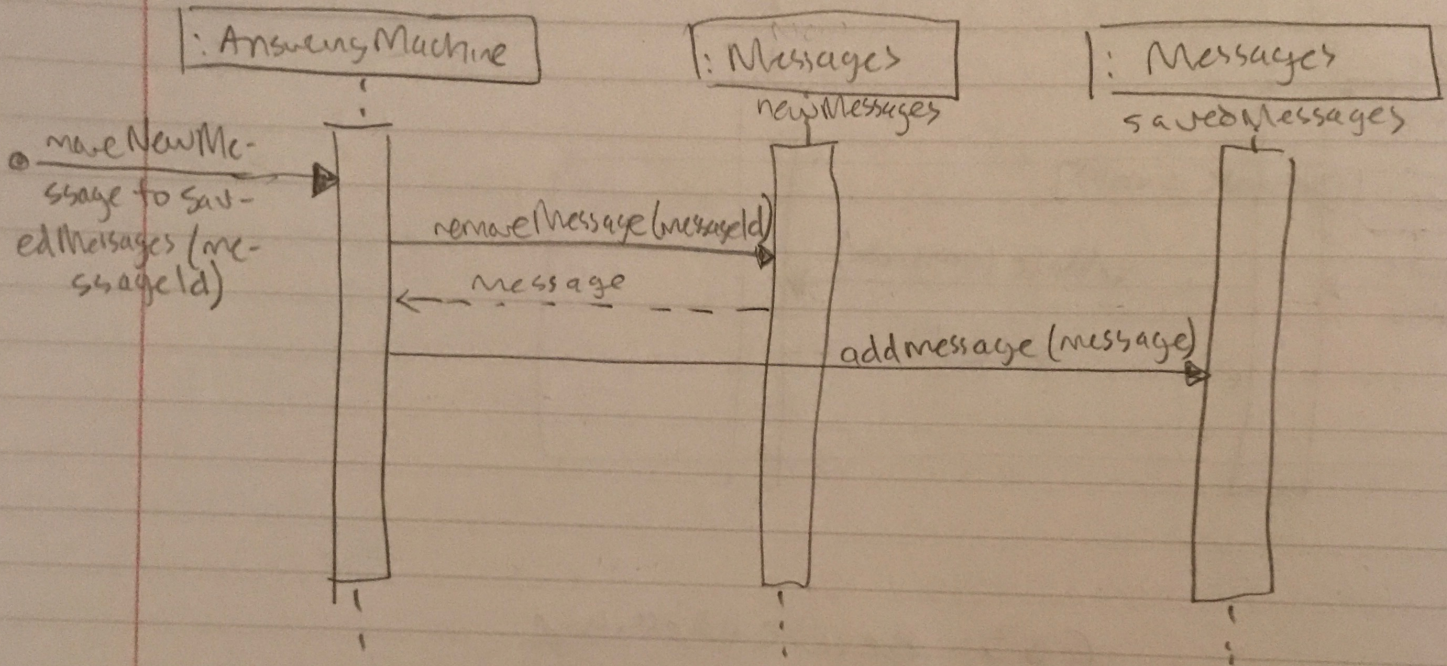 : AnsweringMachine
: Messages
newMessages
: Messages
savedMessages
moveNewMe-
ssage to Sav-
edMessages (me-
ssageId)
removeMessage(messageId)
message
addmessage (message)